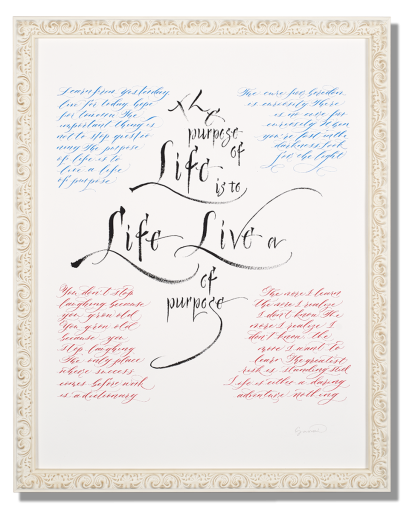 Learn from yesterday
live for today hope
for tomorrow The
important thing is
not to stop questio
ning The purpose
of life is to
live a life
of purpose
The cure for boredom
is curiosity There
is no cure for
curiosity When
you're lost in the
darkness look
for the light
The
purpose
of
Life
is to
Life Live a
of
purpose
You don't stop
laughing because
you grow old
You grow old
because you
stop laughing
The only place
where success
comes before work
is a dictionary
The more I learn
the more I realize
I don't know The
more I realize I
don't know the
more I want to
learn The greatest
risk is standing still
Life is either a daring
adventure nothing